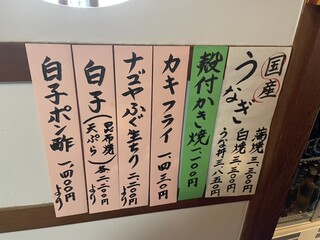 国産
うなぎ
蒲焼 三、三〇〇円
白焼 三、三〇〇円
うな丼 三、八五〇円
殻付かき焼 一、一〇〇円
カキフライ 一、四三〇円
ナゴヤふぐ生ちり 二、二〇〇円より
白子(昆布焼 天ぷら) 各二、二〇〇円より
白子ポン酢 一、四〇〇円より